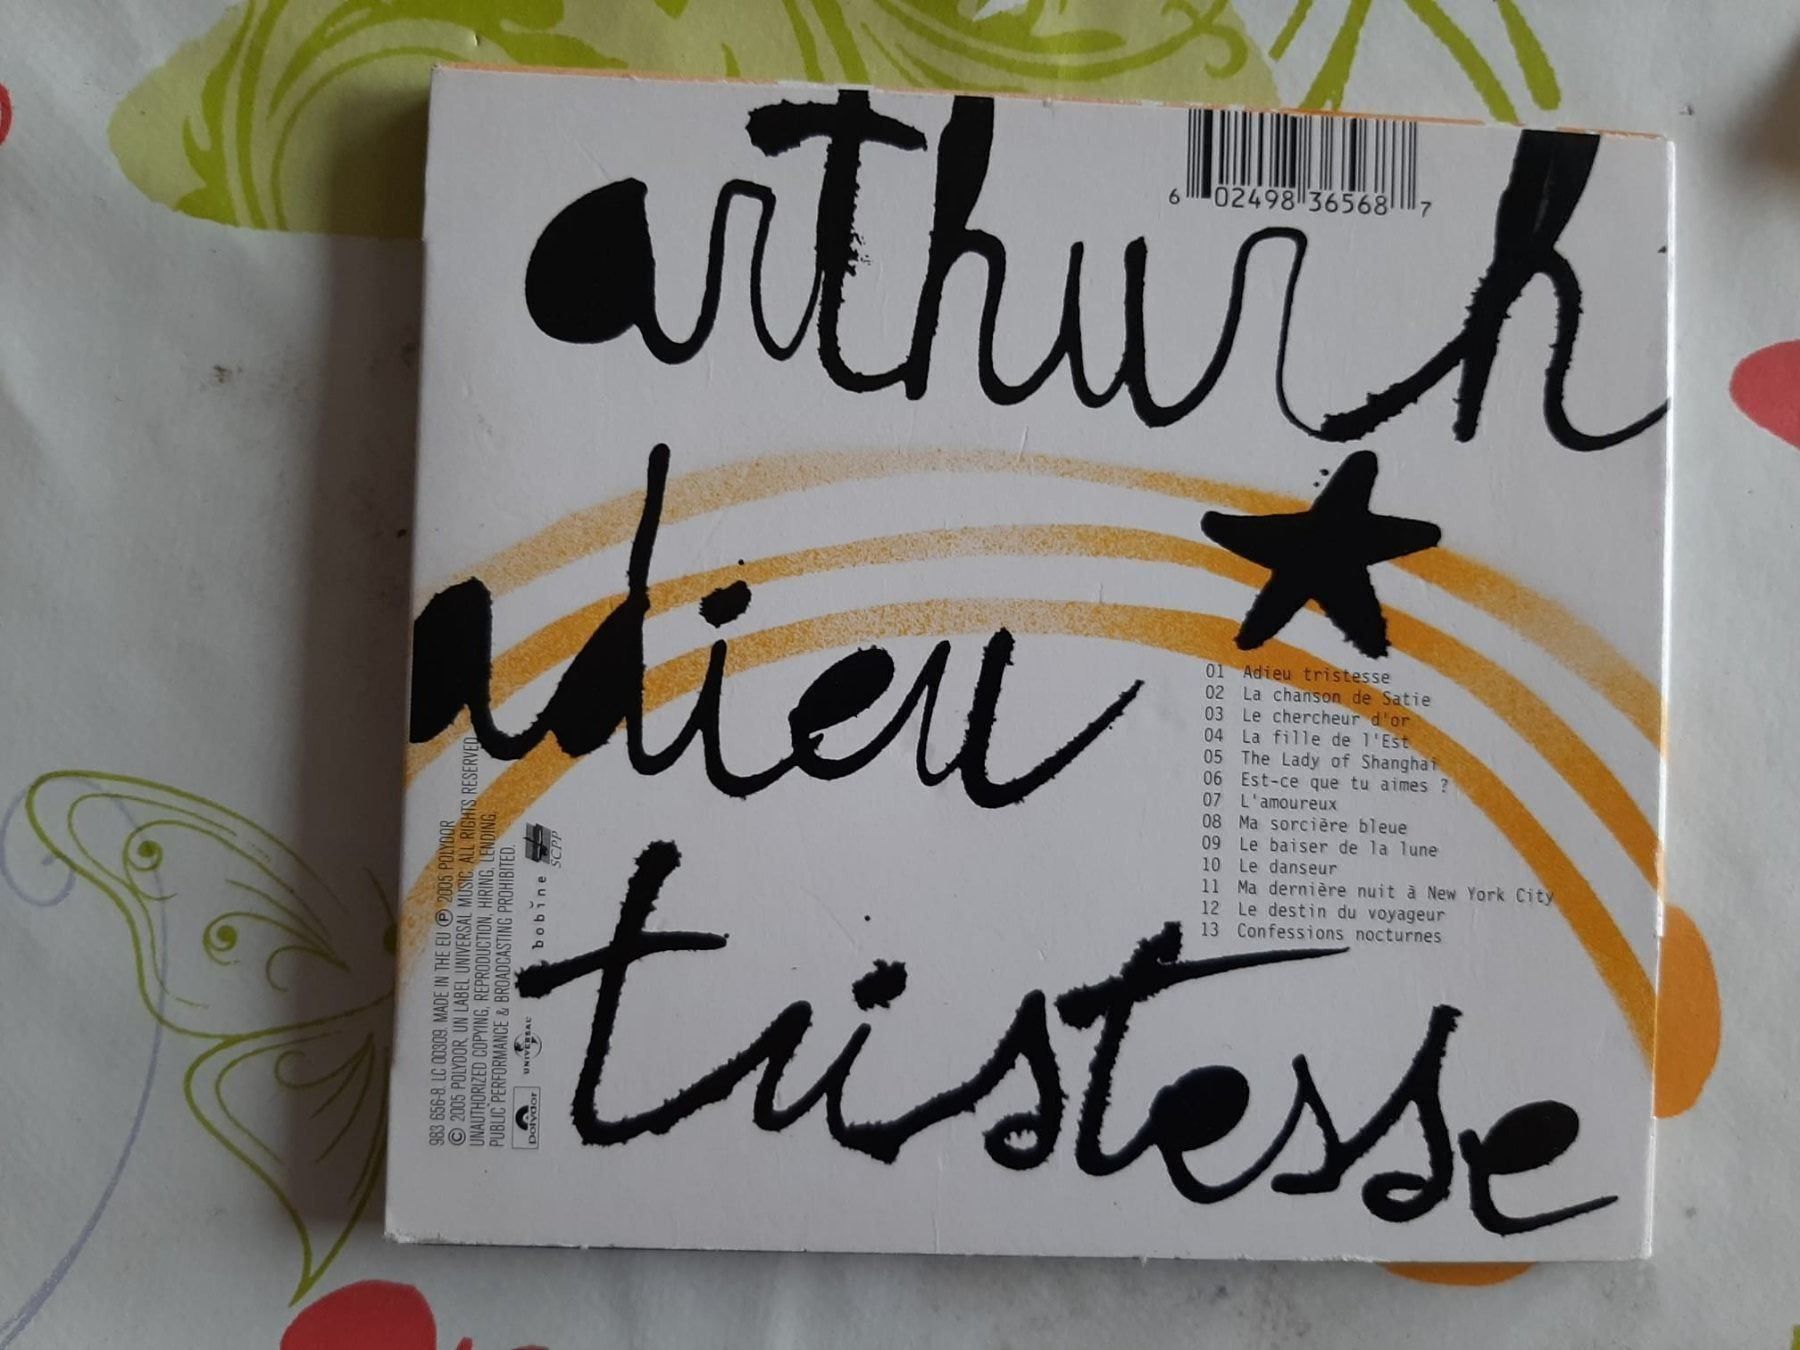 arthur h
6 02498 36568 7
adieu
tristesse
01 Adieu tristesse
02 La chanson de Satie
03 Le chercheur d'or
04 La fille de l'Est
05 The Lady of Shanghai
06 Est-ce que tu aimes ?
07 L'amoureux
08 Ma sorcière bleue
09 Le baiser de la lune
10 Le danseur
11 Ma dernière nuit à New York City
12 Le destin du voyageur
13 Confessions nocturnes
983 656-8. LC 00309. MADE IN THE EU ℗ 2005 POLYDOR
© 2005 POLYDOR, UN LABEL UNIVERSAL MUSIC. ALL RIGHTS RESERVED.
UNAUTHORIZED COPYING, REPRODUCTION, HIRING, LENDING,
PUBLIC PERFORMANCE & BROADCASTING PROHIBITED.
polydor
UNIVERSAL
bobine
SCPP